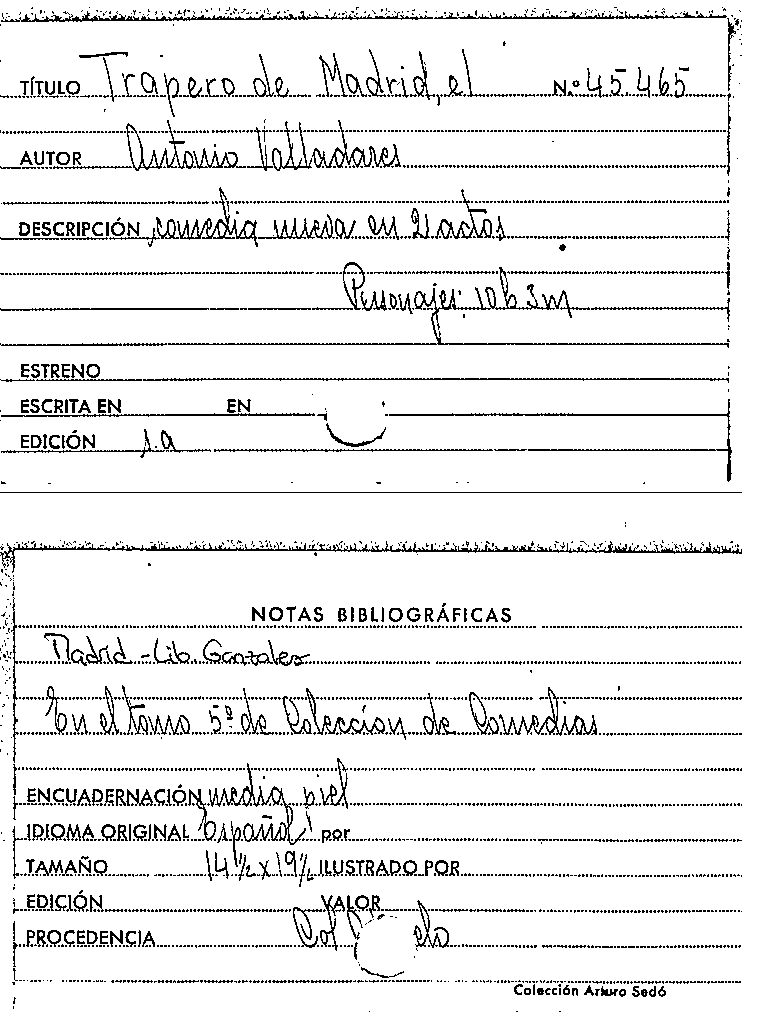 TÍTULO Trapero de Madrid, el N.º 45465
AUTOR Antonio Valladares
DESCRIPCIÓN comedia nueva en 2 actos
Personajes: 10 h 3 m
ESTRENO
ESCRITA EN EN
EDICIÓN s.a
NOTAS BIBLIOGRÁFICAS
Madrid - Lib. Gonzalez
En el tomo 5º de Colección de Comedias
ENCUADERNACIÓN media piel
IDIOMA ORIGINAL Español por
TAMAÑO 14½ x 19½ ILUSTRADO POR
EDICIÓN VALOR
PROCEDENCIA Col
Colección Arturo Sedó